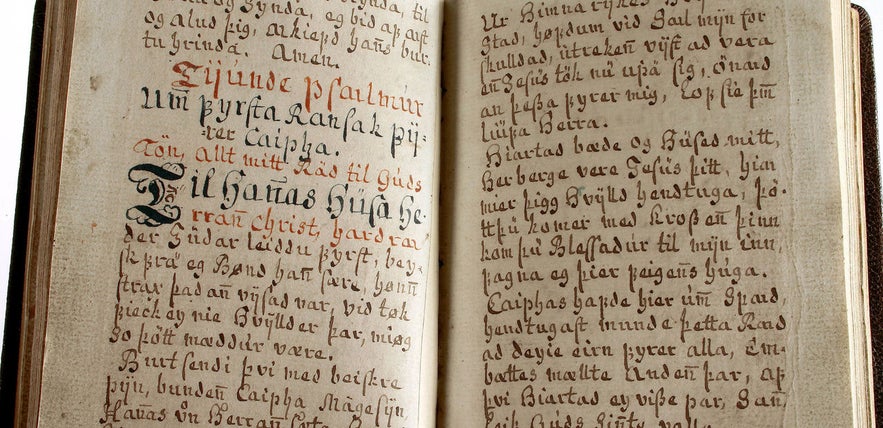 og Synda, eg bid ap ast
og alud þig, akiepd hans bur
tu hrinda. Amen.
Tijunde Psalmur
Um̄ þyrsta Ransak þy/
rer Caipha.
Tön, Allt mitt Räd til Guds
Til Han̄as Hüsa He/
rran̄ Christ, hard ra
der Jüdar leiddu þyrst, bey/
sk þrä eg Bønd han̄ sære, høn̄
strax þad an̄ vijsad var, vid tök
þieck ey nie Hvijlld er þar, miøg
so þött mæddur være.
Burtsendi þvi med beiskre
þijn, bunden̄ Caipha Mägesijn,
Han̄as
Ur Himna rykes
stad, høpdum vid Sail mijn for
skulldad, ütreken̄ vijst ad vera
en̄ Jesus tök nu upä sig, önäd
an þeßa þyrer mig, Lop sie þm̄
liüpa Herra.
Hiartad bæde og Hüsed mitt,
Herberge vere Jesus þitt, hiar
mier þigg Hvijlld hendtuga, þö/
ttu komer med Kroßen̄ þinn
kom þu Blessadur til mijn Inn,
þagna eg þier þeigens huga.
Caiphas hapde hier üm̄ Spaid,
hendtugast munde þetta Räd
ad deyie eirn þyrer alla, Em/
bættes mællte Anden̄ þar, ap
þvi Hiartad ey viße par, San̄
leik Guds